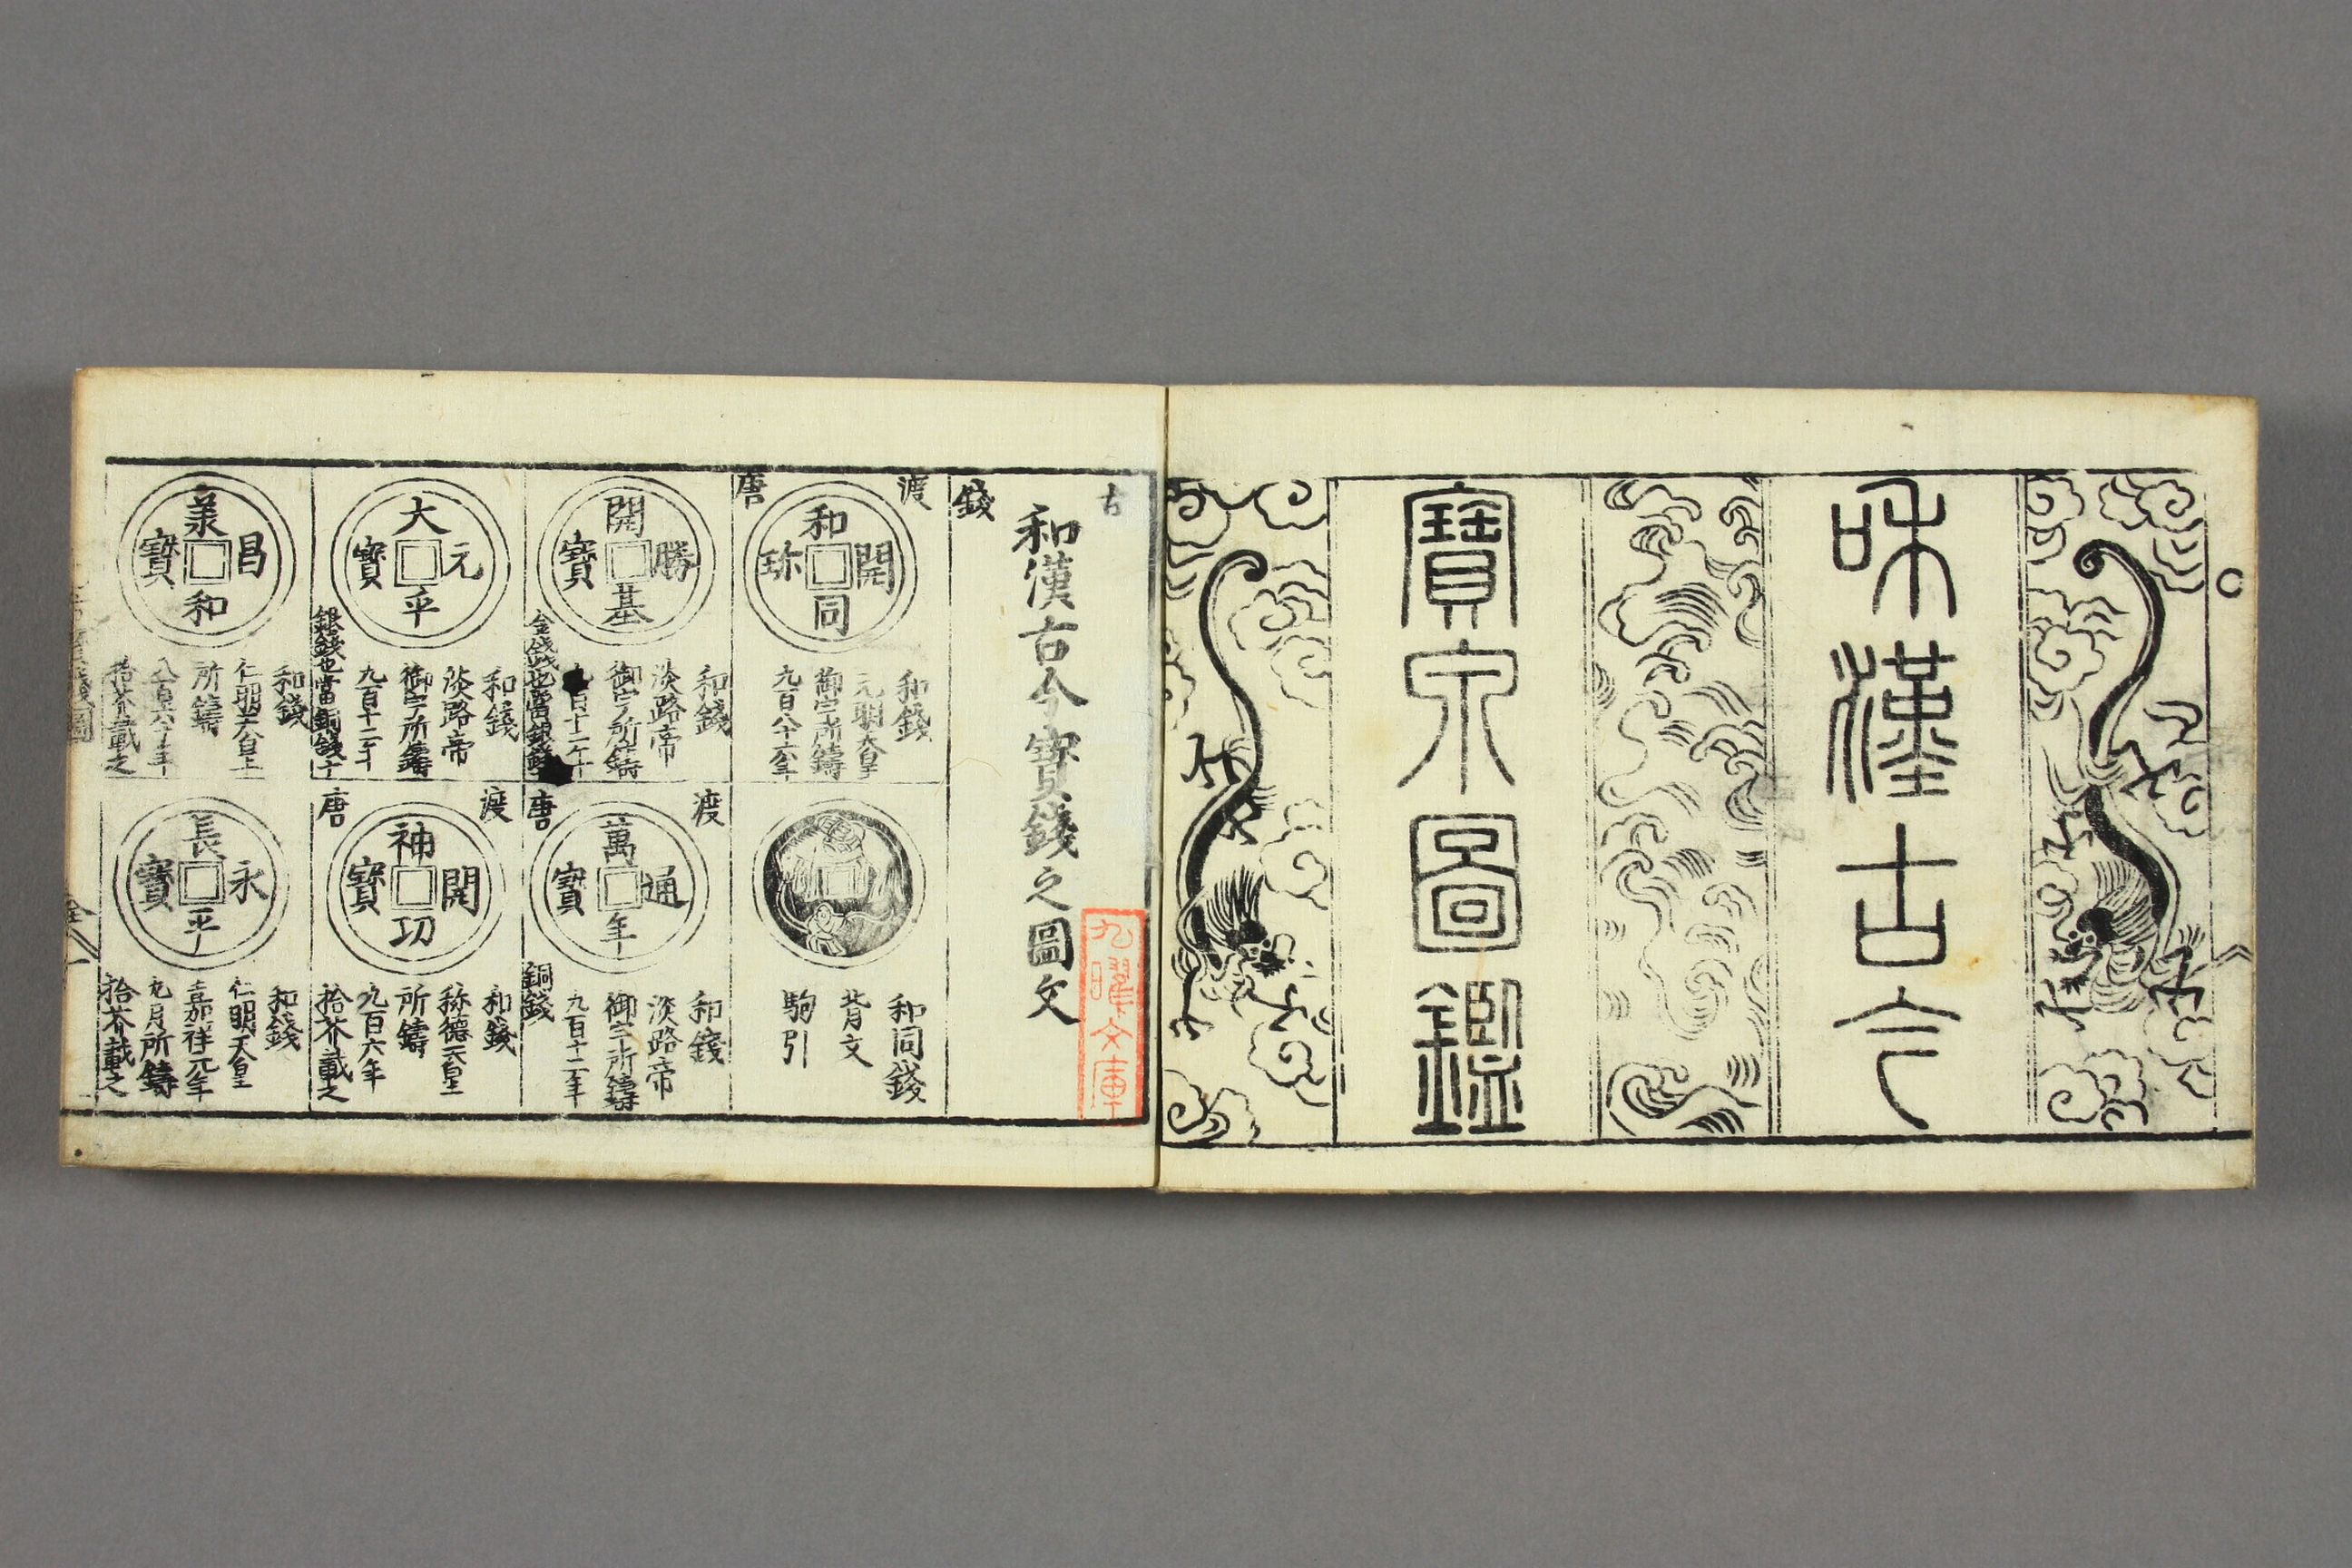 和漢古今
寳泉圖鑑
古
錢
和漢古今寳錢之圖文
九曜文庫
渡
唐
和同開珎
和錢
元明天皇
御宇所鑄
九百八十六年
和同錢
背文
駒引
開基勝寳
和錢
淡路帝
御宇所鑄
金錢也當銀錢十
渡
唐
萬年通寳
和錢
淡路帝
御宇所鑄
九百十二年
銅錢
大平元寳
和錢
淡路帝
御宇所鑄
九百十二年
銀錢也當銅錢十
渡
唐
神功開寳
和錢
称德天皇
所鑄
九百六年
拾芥載之
義和昌寳
和錢
仁明天皇
所鑄
八百六十年
拾芥載之
長平永寳
和錢
仁明天皇
嘉祥元年
九月所鑄
拾芥載之